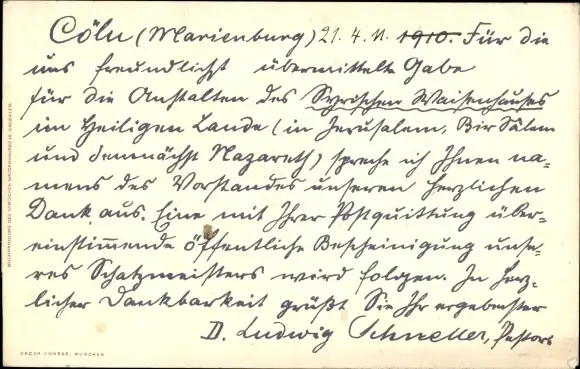 Cöln (Marienburg) 21. 4. 11. 1910. Für die
uns freundlichst übermittelte Gabe
für die Anstalten des Syrischen Waisenhauses
im Heiligen Lande (in Jerusalem, Bir Sâlem
und demnächst Nazareth) spreche ich Ihnen na-
mens des Vorstandes unseren herzlichen
Dank aus. Eine mit Ihrer Postquittung über-
einstimmende öffentliche Bescheinigung unse-
res Schatzmeisters wird folgen. In herz-
licher Dankbarkeit grüßt Sie Ihr ergebenster
D. Ludwig Schneller, Pastor
OSCAR CONSÉE, MÜNCHEN